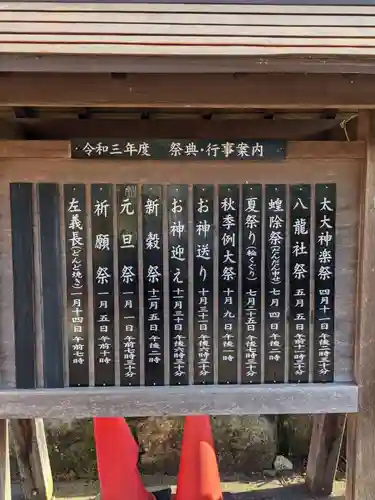 令和三年度 祭典・行事案内
太大神楽祭 四月十一日 午後二時三十分
八龍社祭 五月五日 午前十一時三十分
蝗除祭(だんだん坊) 七月四日 午後二時三十分
夏祭り(輪くぐり) 七月二十五日 午後七時三十分
秋季例大祭 十月九日 午後一時
お神送り 十月三十一日 午後六時三十分
お神迎え 十一月三十日 午後六時三十分
新穀祭 十二月五日 午後二時
元旦祭 一月一日 午前六時三十分
祈願祭 一月五日 午前十時
左義長(どんど焼き) 一月十四日 午前七時